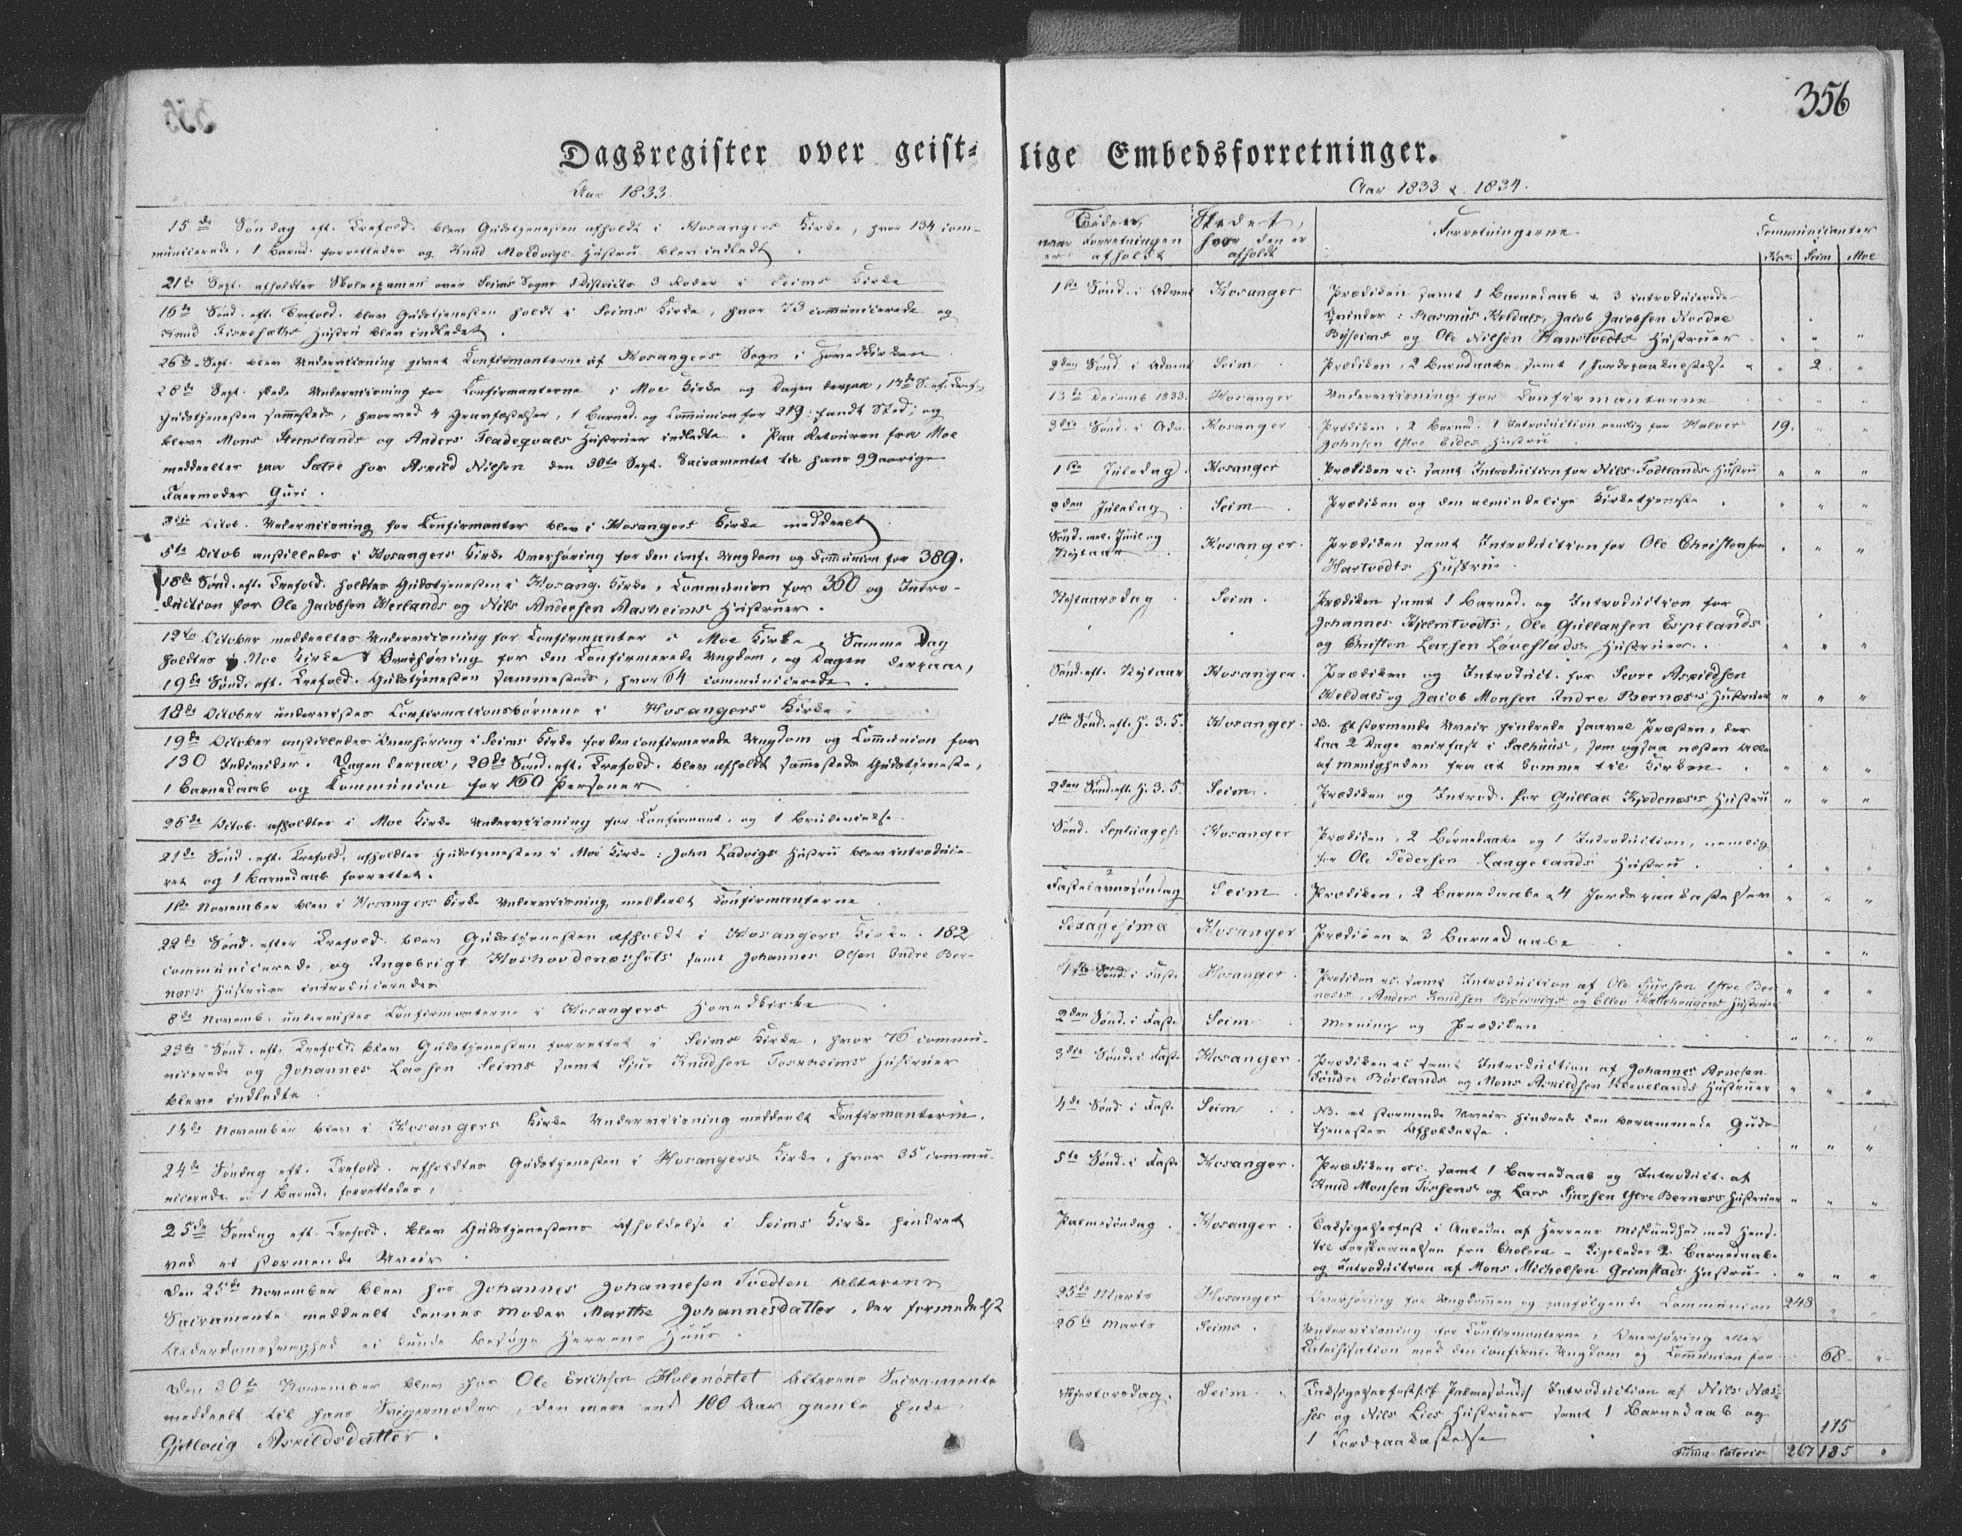 356
Dagsregister over geist-
lige Embedsforretninger.
Aar 1833.
15de Søndag eft. Trefold. blev Gudstjenesten afholdt i Hosangers Kirke, hvor 134 com-
municerede, 1 Barned. forrettedes og Knud Moldvigs Hustru blev indledt.
21de Sept. afholdtes Skoleexamen over Seims Sogns Districts 3 Roder i Seims Kirke
16de Sönd. eft. Trefold. blev Gudstjenesten holdt i Seims Kirke, hvor 73 communicerede og
Knud Hustru blev indledet.
26de Sept. blev Underviisning givet Confirmanterne af Hosangers Sogn i Hovedkirken
28de Sept. skede Underviisning for Confirmanterne i Moe Kirke og Dagen derpaa, 17de S. ef. Tref.
Gudstjenesten sammesteds, hvorved 4 Gravfæstelser, 1 Barned. og Communion for 219 fandt Sted; og
bleve Mons Steenslands og Anders Hustruer indledte. Paa Retouren fra Moe
meddeeltes paa Sætre hos Askild Nilsen den 30te Sept. Sacramentet til hans 99aarige
Faermoder Guri.
Octob. Underviisning for Confirmanter blev i Hosangers Kirke meddeelt
5te Octob anstilledes i Hosangers Kirke Overhøring for den conf. Ungdom og Communion for 389.
18de Sönd. eft. Trefold. holdtes Gudstjenesten i Hosang. Kirke, Communion for 360 og Intro-
duction for Ole Jacobsen Herlands og Nils Andersen Aasheims Hustruer.
12te October meddeeltes Underviisning for Confirmanter i Moe Kirke, Samme Dag
holdtes i Moe Kirke Overhøring for den Confirmerede Ungdom, og Dagen derpaa,
19de Sönd. eft. Trefold. Gudstjenesten sammesteds, hvor 64 communicerede.
18de October undervistes Confirmationsbörnene i Hosangers Kirke.
19de October anstilledes Overhøring i Seims Kirke for den confirmerede Ungdom og Communion for
130 Individer. Dagen derpaa, 20de Sönd. eft. Trefold. blev afholdt sammesteds Gudstjeneste,
1 Barnedaab og Communion for 160 Personer
26de Octob. afholdtes i Moe Kirke Underviisning for Confirmant. og 1 Brudevielse.
21de Sönd. eft. Trefold. afholdtes Gudstjenesten i Moe Kirke; John Ladvigs Hustru blev introduce-
ret og 1 Barnedaab forrettet.
1ste November blev i Hosangers Kirke Underviisning meddeelt Confirmanterne
22de Sönd. efter Trefold. blev Gudstjenesten afholdt i Hosangers Kirke. 182
communicerede, og Ingebrigt samt Johannes Olsen Indre Ber-
næss Hustruer introduceredes
8de Novemb. undervistes Confirmanterne i Hosangers Hovedkirke
23de Sönd. eft. Trefold. blev Gudstjenesten forrettet i Seims Kirke, hvor 76 commu-
nicerede og Johannes Larsen Seims samt Sjur Knudsen Hustruer
bleve indledte.
15de November blev i Hosangers Kirke Underviisning meddeelt Confirmanterne.
24de Söndag eft. Trefold. afholdtes Gudstjenesten i Hosangers Kirke, hvor 35 commu-
nicerede og 1 Barned. forrettedes.
25de Söndag eft. Trefold. blev Gudstjenestens Afholdelse i Seims Kirke hindret
ved et stormende Uveir.
Den 25de November blev hos Johannes Johannesen Alterens
Sacramente meddeelt dennes Moder Marthe Johannesdatter, der formedelst
Alderdomssvaghed ei kunde besøge Herrens Huus.
Den 30te November blev hos Ole Erichsen Alterens Sacramente
meddeelt til hans Svigermoder, den mere end 100 Aar gamle Enke
Askildsdatter.
Aar 1833 & 1834.
Tiden, naar Forretningen er afholdt
Stedet, hvor den er afholdt
Forretningerne
Communicanter
Hos. Seim Moe
1ste Sönd. i Advent Hosanger Prædiken samt 1 Barnedaab & 3 introducerede
Qvinder: Rasmus Keldals, Jacob Jacobsen Nordre
Byseims og Ole Nilsen Hanstvedts Hustruer
2den Sönd. i Advent Seim Prædiken, 2 Barnedaabe samt 1 Jordpaakastelse " 2. "
13de Decemb 1833. Hosanger Underviisning for Confirmanterne
3die Sönd. i Adv. Hosanger Prædiken, 2 Barned. 1 Introduction nemlig for Halvor 19. " "
Johnsen Ytre Eides Hustru
1ste Juledag. Hosanger Prædiken &c. samt Introduction for Nils Hustru " " "
2den Juledag Seim Prædiken og den almindelige Kirketjeneste. " " "
Sönd. mel. Juul og Hosanger. Prædiken samt Introduction for Ole Christensen " " "
Nytaar Hartvedts Hustru.
Nytaarsdag Seim. Prædiken samt 1 Barned. og Introduction for
Johannes Hjelmtvedts, Ole Gullaksen Espelands
og Christen Larsen Hustruer. " " "
Sönd. eft. Nytaar Hosanger. Prædiken og Introduct. for Sevre Askildsen
Keldals og Jacob Monsen Indre Bernæss Hustruer " " "
1ste Sönd. eft. H. 3. K. Hosanger. NB. Et stormende Uveir hindrede saavel Præsten, der
laa 2 Dage veirfast i Salhuus, som ogsaa næsten Alle
af Menigheden fra at komme til Kirken. " " "
2den Sönd. eft. H. 3. K. Seim. Prædiken og Introd. for Gullak Hustru " " "
Sönd. Septuages. Hosanger Prædiken, 2 Börnedaabe og 1 Introduction, nemlig
for Ole Pedersen Langelands Hustru. " " "
Fastelavnssöndag Seim. Prædiken, 2 Barnedaabe & 4 Jordspaakastelser " " "
Sexagesima Hosanger Prædiken & 3 Barnedaabe " " "
1ste Sönd. i Fast. Hosanger. Prædiken &c. samt Introduction af Ole Sjursen Ytre Ber-
næss, Anders Knudsen og Ellev Hustruer " " "
2den Sönd. i Fast. Seim. Messning og Prædiken " " "
3die Sönd. i Fast. Hosanger. Prædiken &c samt Introduction af Johannes Arnesen
Söndre Röslands og Mons Askildsen Hustruer " " "
4de Sönd. i Fast. Seim. NB. et stormende Uveir hindrede den berammede Guds-
tjenestes Afholdelse. " " "
5te Sönd. i Fast. Hosanger. Prædiken etc. samt 1 Barnedaab og Introduct. af
Knud Monsen og Lars Sjursen Ytre Bernæss Hustruer " " "
Palmesöndag. Hosanger. Taksigelsesfest i Anledn. af Herrens Miskundhed med Hens.
til Forskaanelsen fra Cholera - Ligeledes 2 Barnedaabe
og Introduction af Mons Michelsen Grimstads Hustru. " " "
25de Marts Hosanger Overhøring for Ungdommen og paafølgende Communion 248 " "
26de Marts Seims. Underviisning for Confirmanterne, Overhøring eller
Catechisation med den confirm. Ungdom og Communion for 68. "
Skjertorsdag. Seim. Taksigelsesfest Palmesönd. Introduction af Nils Næs-
ses og Nils Lies Hustruer samt 1 Barnedaab og
1 Jordpaakastelse 115
Summa lateris 267 185 "